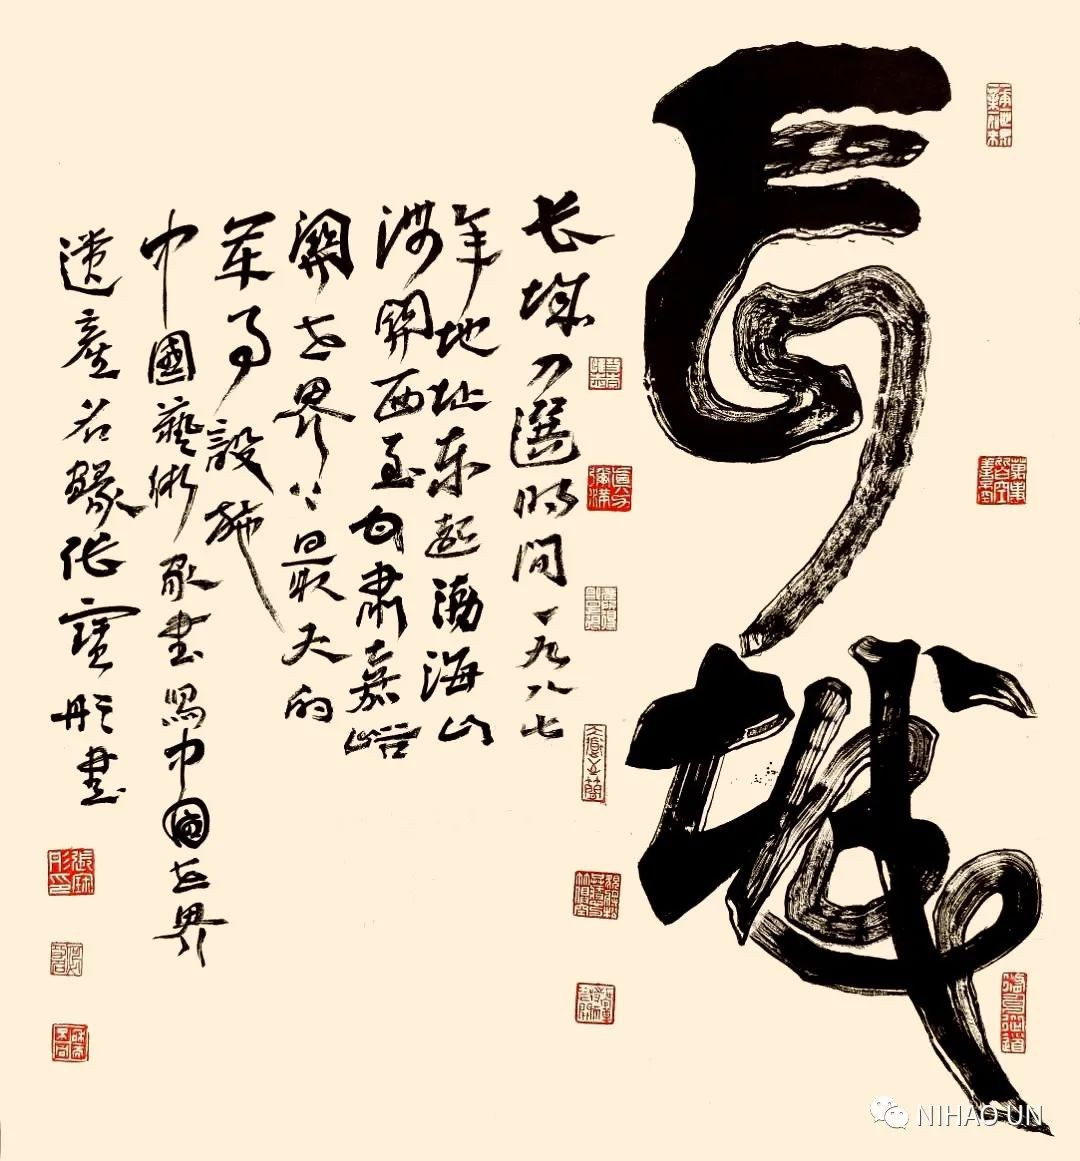 長城
长城入選時間一九八七
年地址東起渤海山
海關西至甘肅嘉峪
關世界上最大的
軍事設施
中國藝術家書寫中國世界
遺產名錄張寶彤書
NIHAO UN